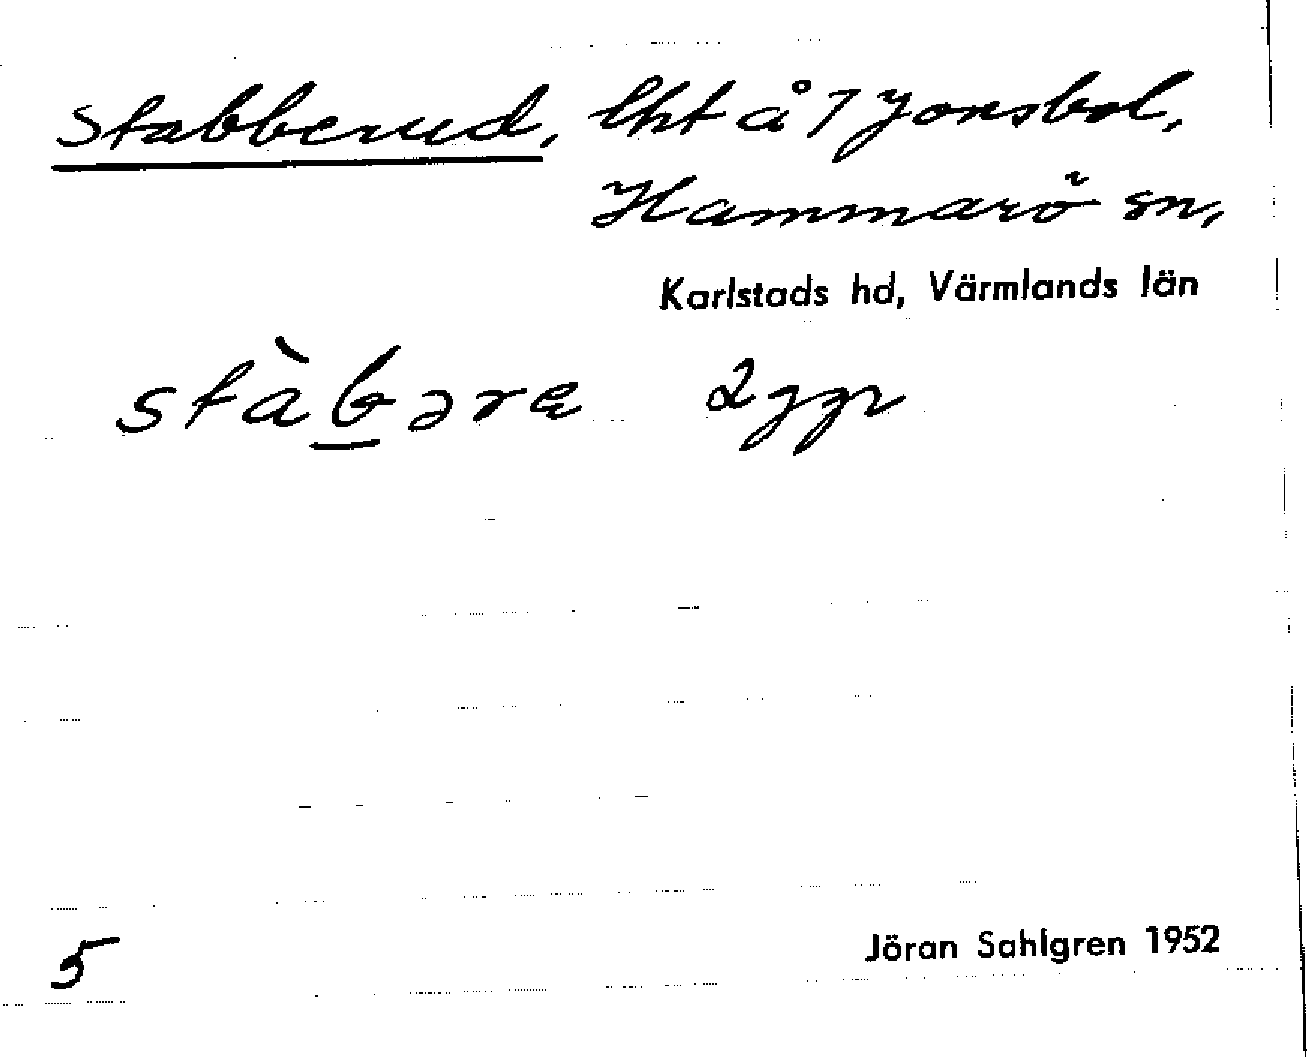 Stabberud, lht å 7 Jonsbol,
Hammarö sn,
Karlstads hd, Värmlands län
stàb̲əra 2 ggr
5
Jöran Sahlgren 1952